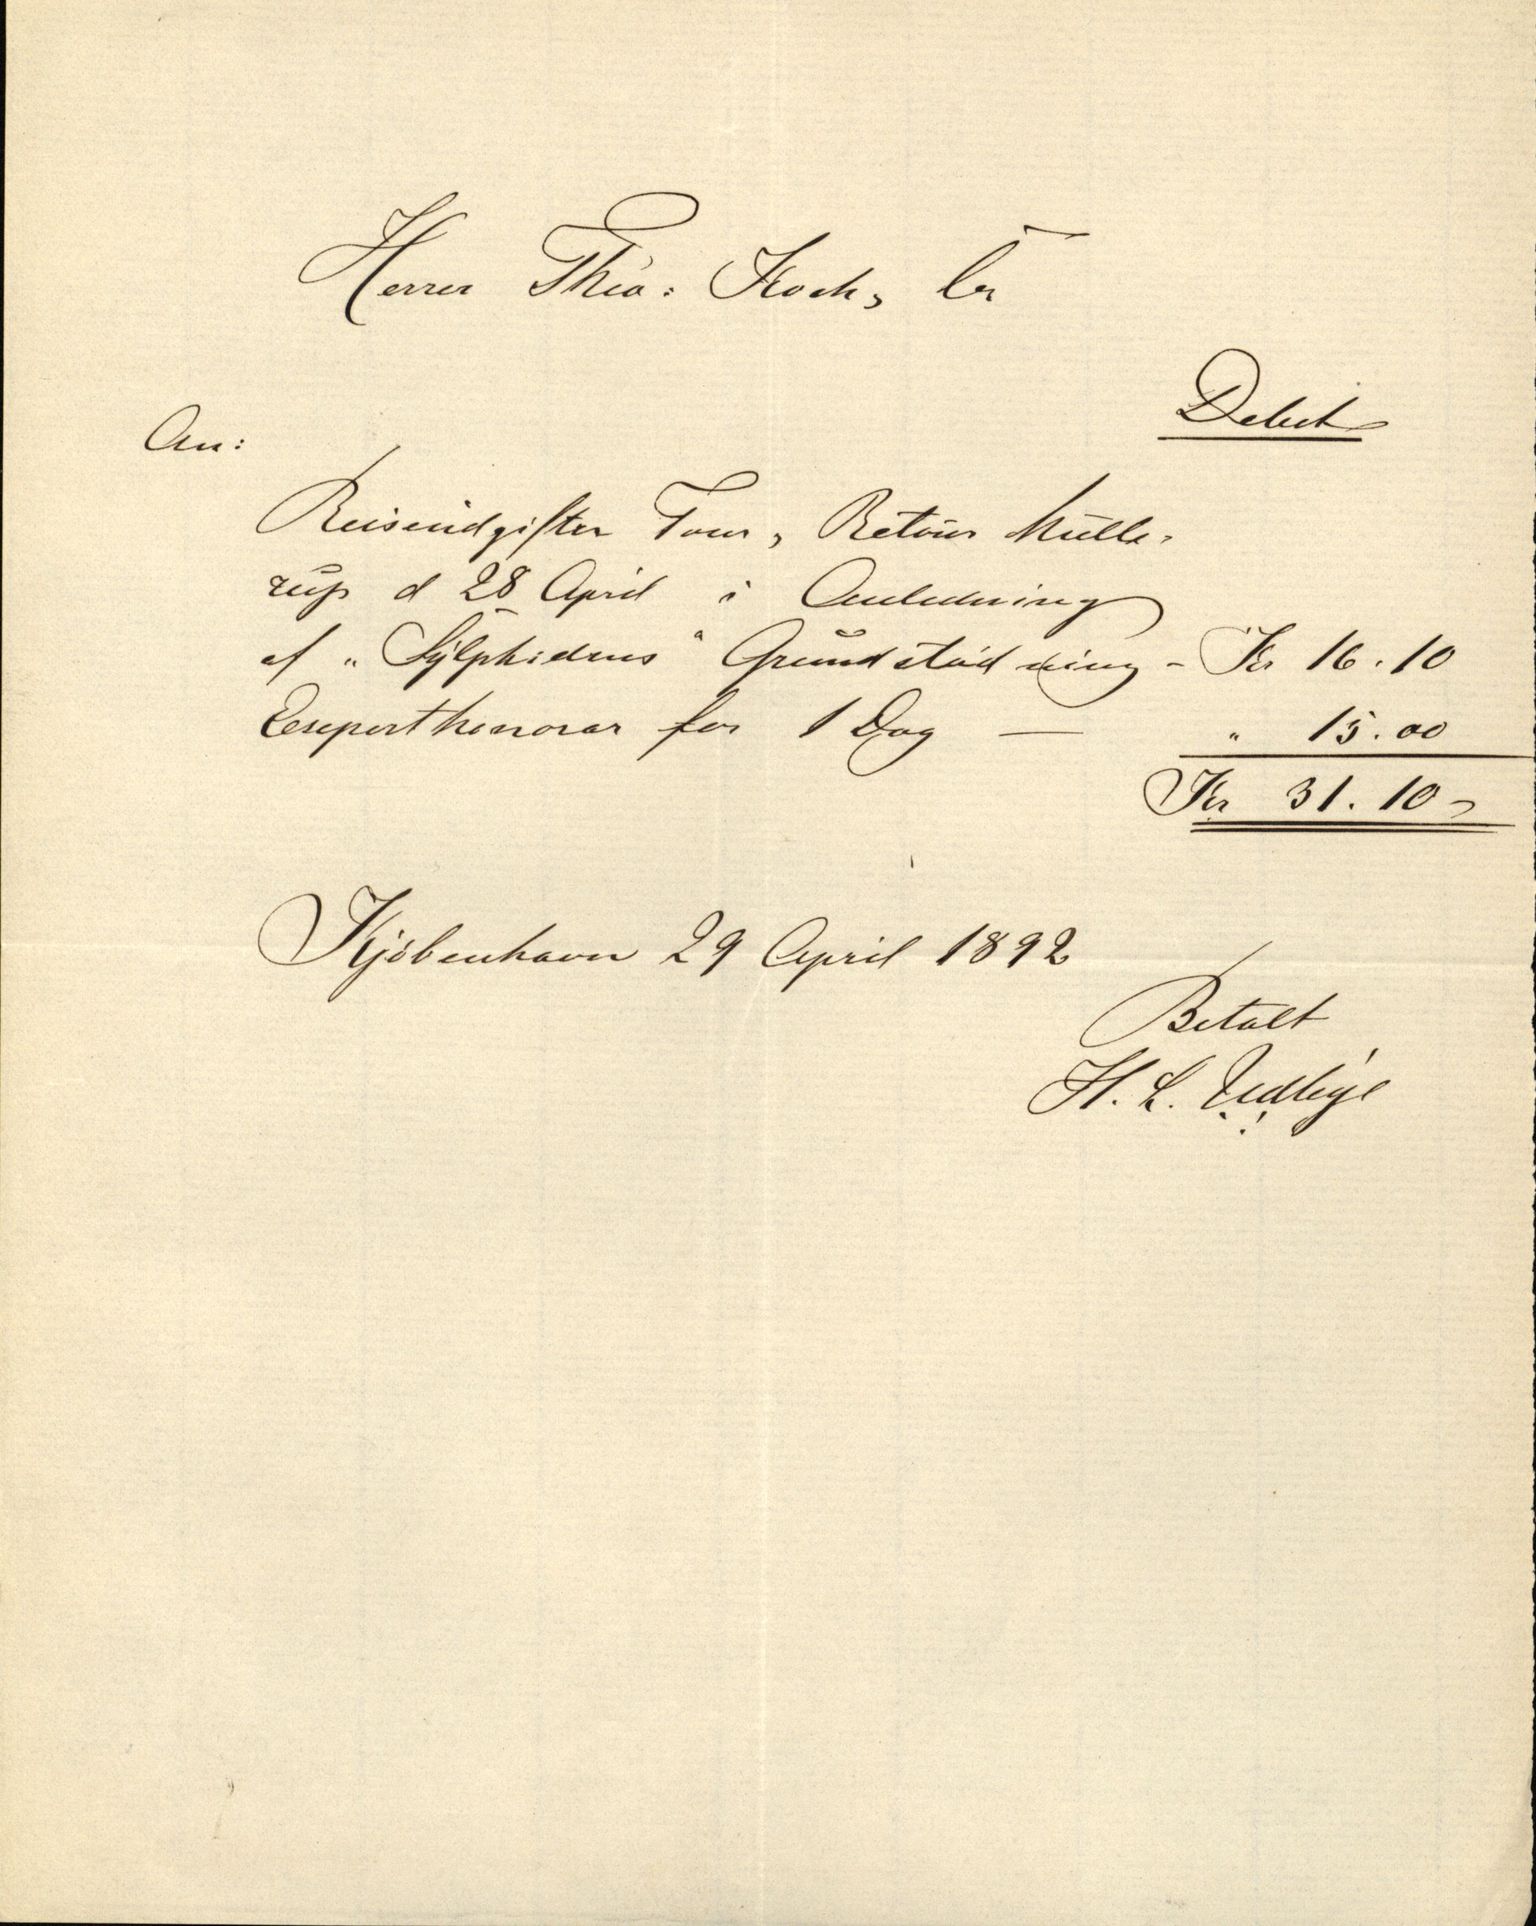 Herrer Theo: Koch, Co
Debet
An:
Reiseudgifter Tour, Retour Mulle-
rup d 28 April i Anledning
af "Sylphidens" Grundstødning - Kr 16.10
Exsperthonorar for 1 Dag — " 15.00
Kr 31.10
Kjøbenhavn 29 April 1892
Betalt
H. L.